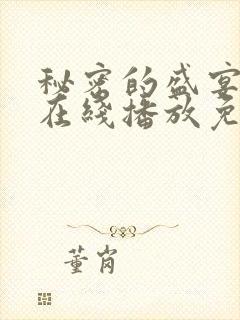 秘密的盛宴
在綫播放免
董肖